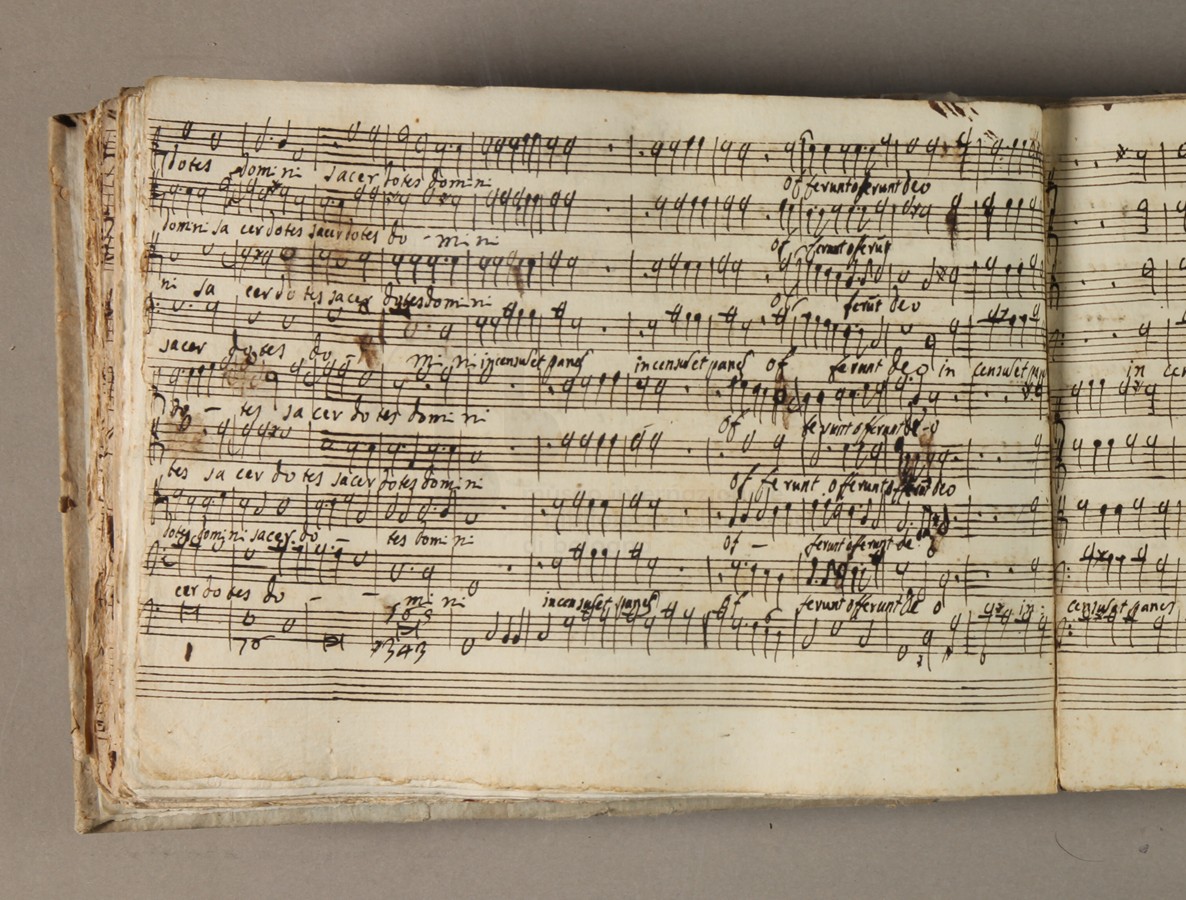 dotes domini sacerdotes domini of ferunt oferunt deo
domini sa cerdotes sacerdotes do - mi ni of ferunt oferūt
ni sa cerdo tes sacer dotes domini of ferūt deo
sacer do tes do mi ni incensu et panes incensu et panes of ferunt deo in censu et pa in cen
do - tes sa cer do tes domi ni of ferunt oferunt de - o
tes sa cer do tes sacer dotes domi ni of fe runt oferunt oferūt deo
dotes domini sacer do - tes domi ni of - ferunt oferunt de
cer do tes do - - mi ni incensu et panes of ferunt offerunt de o in censu et panes
76
343
6